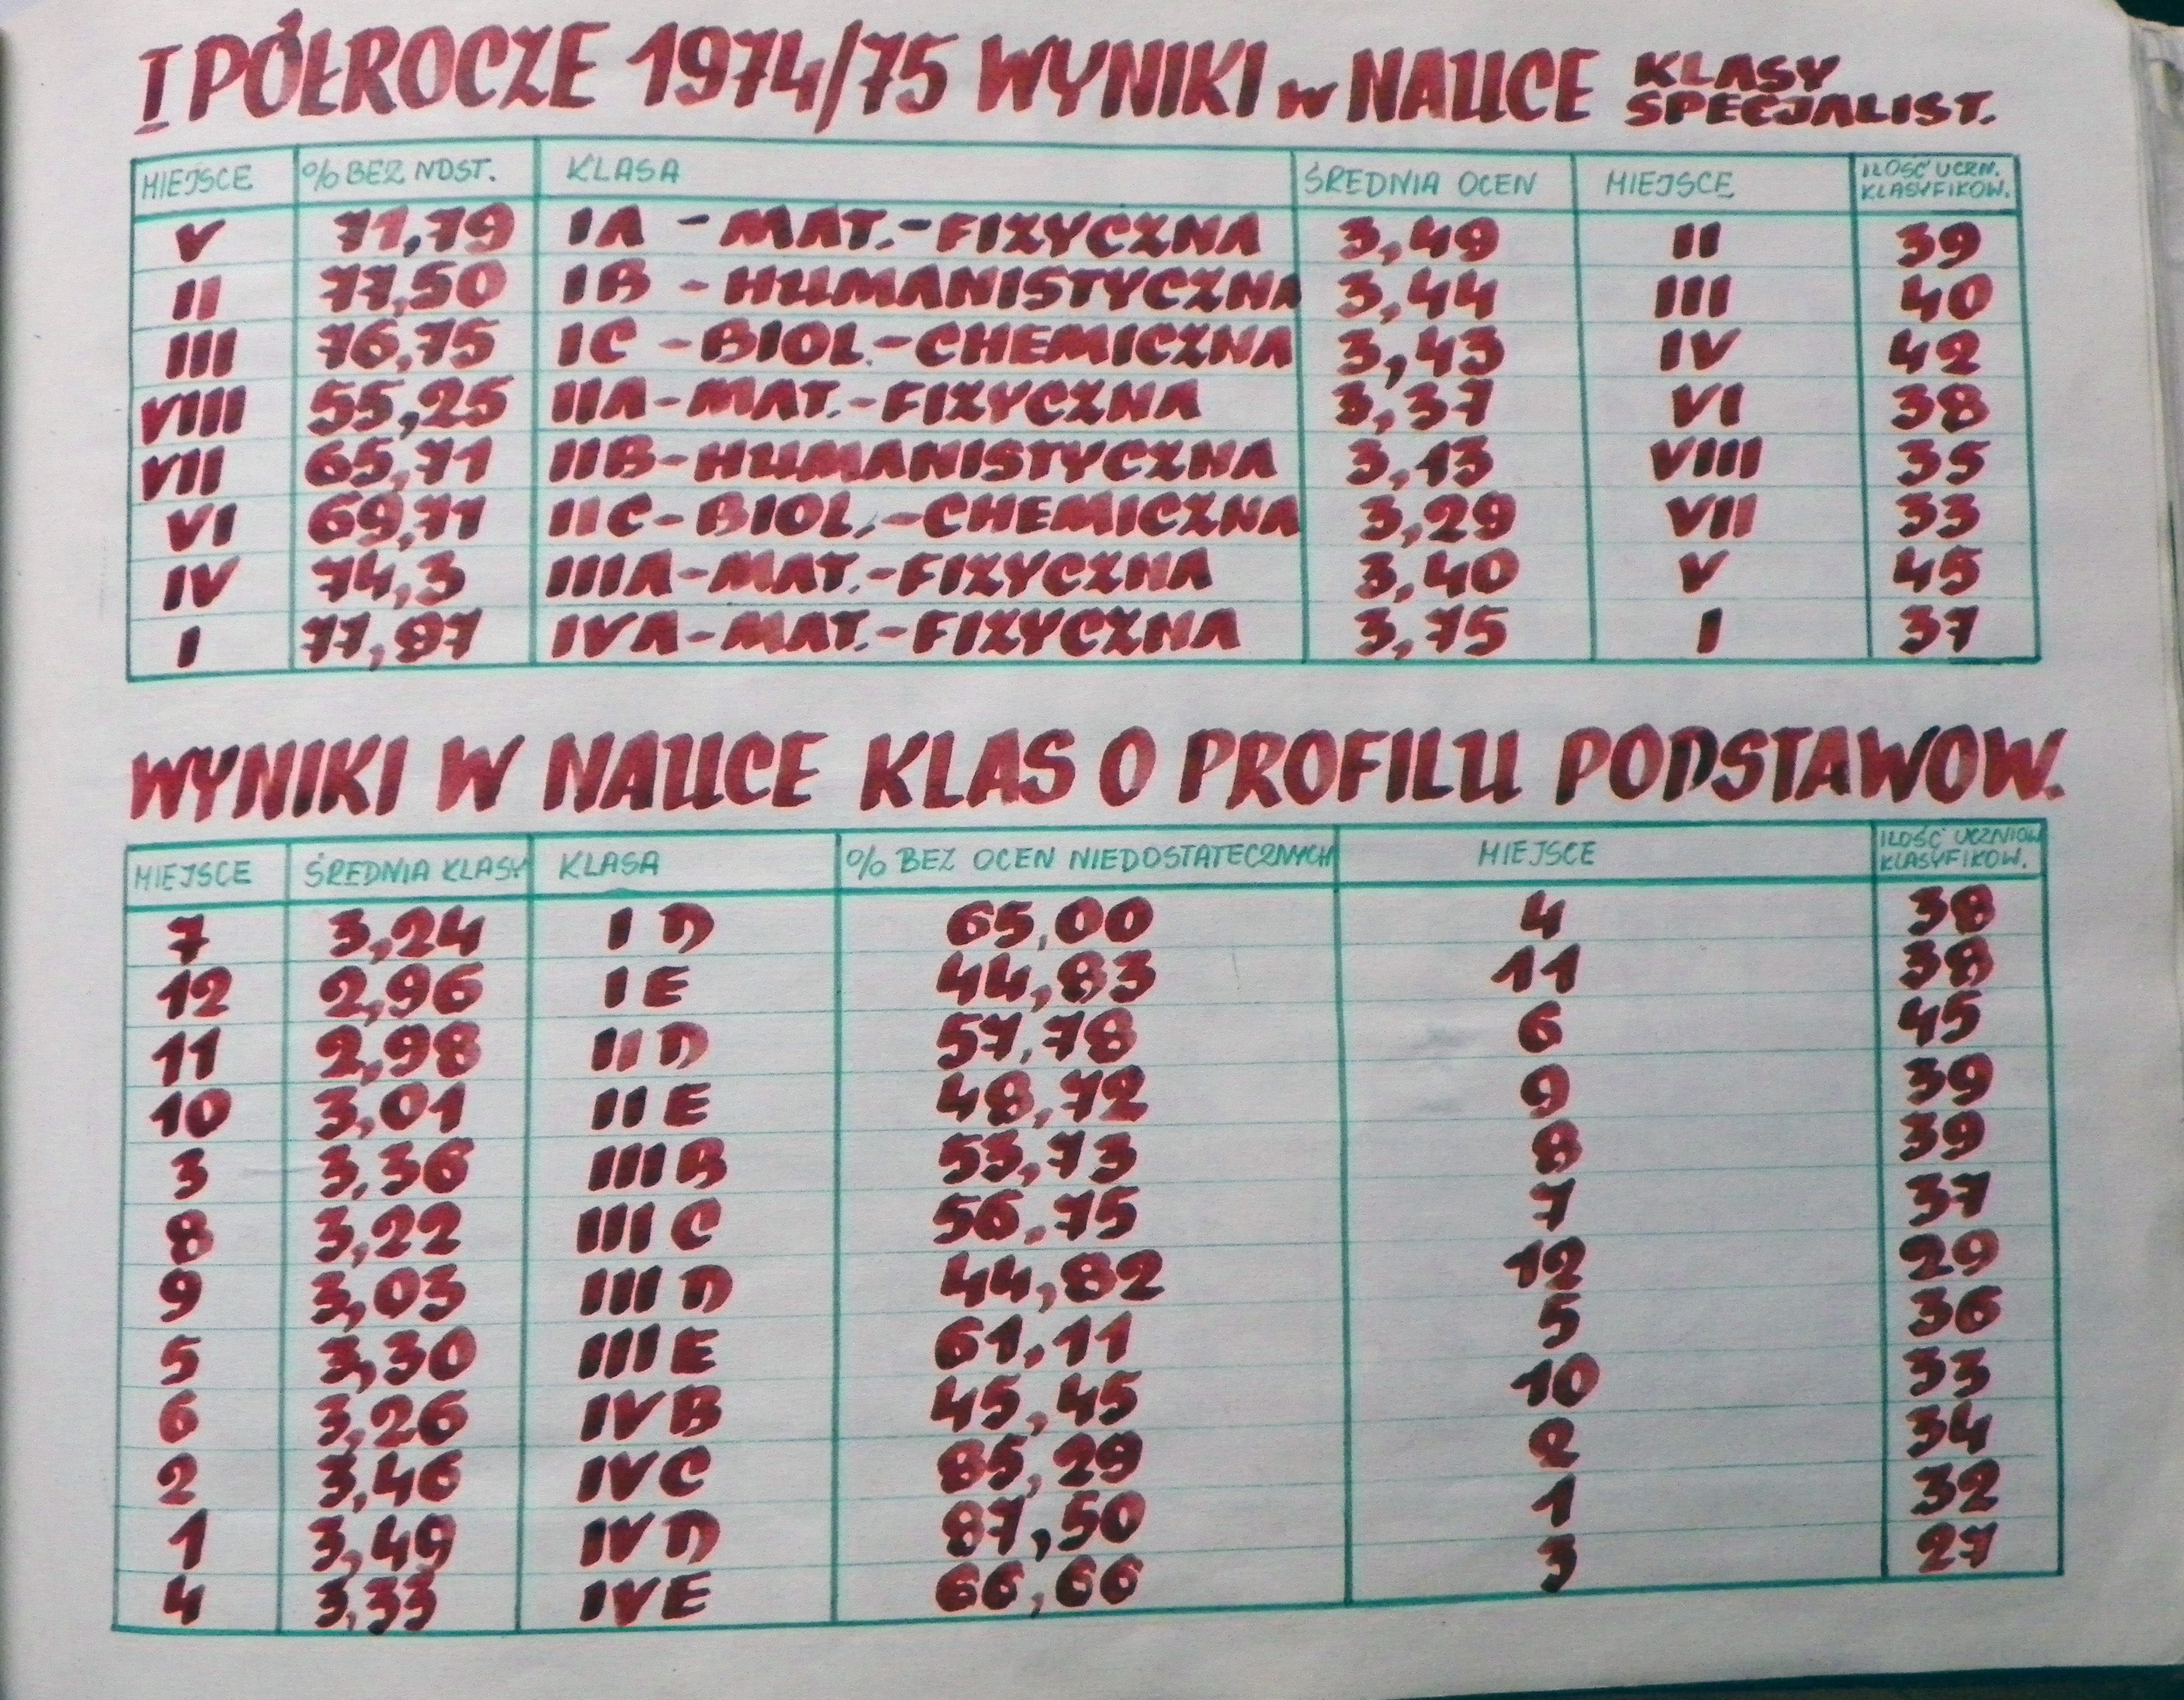 I PÓŁROCZE 1974/75 WYNIKI w NAUCE KLASY SPECJALIST.
MIEJSCE % BEZ NDST. KLASA ŚREDNIA OCEN MIEJSCE ILOŚĆ UCZN. KLASYFIKOW.
V 71,79 IA - MAT.-FIZYCZNA 3,49 II 39
II 77,50 IB - HUMANISTYCZNA 3,44 III 40
III 76,75 IC - BIOL.-CHEMICZNA 3,43 IV 42
VIII 55,25 IIA-MAT.-FIZYCZNA 3,37 VI 38
VII 65,71 IIB-HUMANISTYCZNA 3,13 VIII 35
VI 69,71 IIC-BIOL.-CHEMICZNA 3,29 VII 33
IV 74,3 IIIA-MAT.-FIZYCZNA 3,40 V 45
I 77,97 IVA-MAT.-FIZYCZNA 3,75 I 37
WYNIKI W NAUCE KLAS O PROFILU PODSTAWOW.
MIEJSCE ŚREDNIA KLASY KLASA % BEZ OCEN NIEDOSTATECZNYCH MIEJSCE ILOŚĆ UCZNIÓW KLASYFIKOW.
7 3,24 I D 65,00 4 38
12 2,96 I E 44,83 11 38
11 2,98 II D 57,78 6 45
10 3,01 II E 48,72 9 39
3 3,36 III B 53,73 8 39
8 3,22 III C 56,75 7 37
9 3,03 III D 44,82 12 29
5 3,30 III E 61,11 5 36
6 3,26 IV B 45,45 10 33
2 3,46 IV C 85,29 2 34
1 3,49 IV D 87,50 1 32
4 3,33 IV E 66,66 3 27